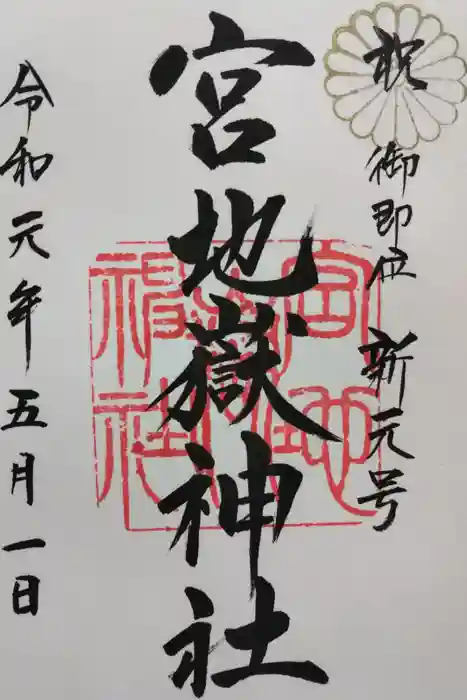 祝 御即位 新元号
宮地嶽神社
令和元年五月一日